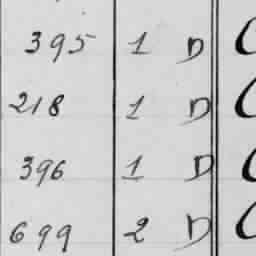 395 1 D
218 1 D
396 1 D
699 2 D